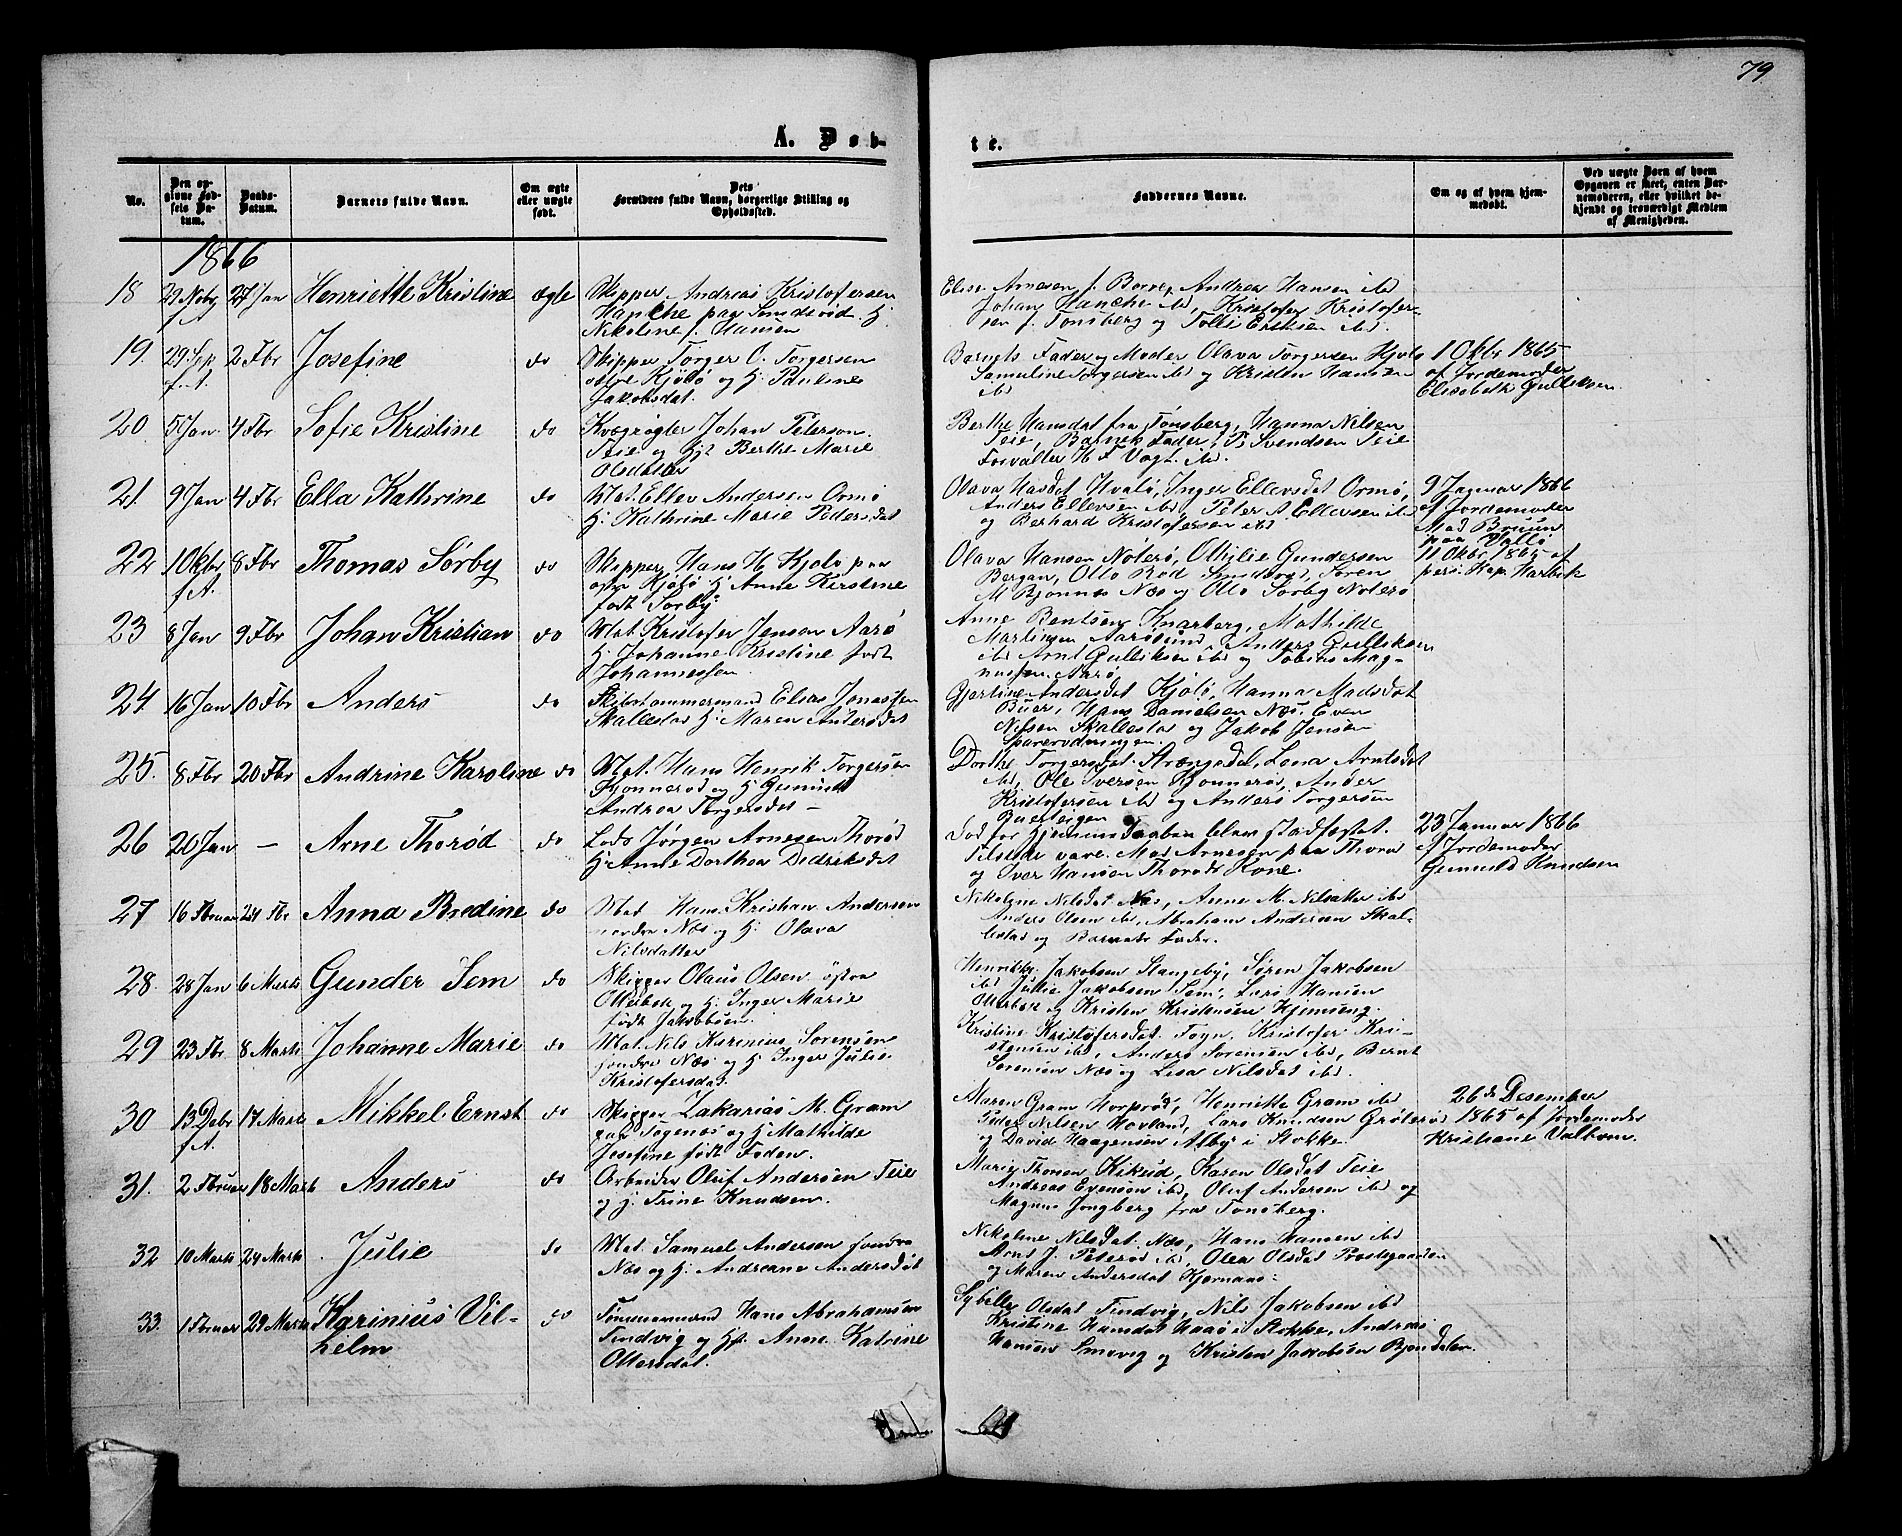 79
A. Døb-
te.
No.
Den op-
givne Fød-
sels Da-
tum.
Daabs-
Datum.
Barnets fulde Navn.
Om ægte
eller uægte
født.
Dets
Forældres fulde Navn, borgerlige Stilling og
Opholdssted.
Faddernes Navne.
Om og af hvem hjem-
medøbt.
Ved uægte Børn af hvem
Opgaven er skeet, enten Bar-
nemoderen, eller hvilket be-
kjendt og troværdigt Medlem
af Menigheden.
1866
18 29 Nobr 27 Jan Henriette Kristine ægte Skipper Andreas Kristofersen
f A. Hanche paa Smidsrød. Hj
Nikoline f. Hansen
Elise Arnesen f. Borre, Andrea Hansen ibd
Johan Hanche ibd, Kristofer Kristofer-
sen f. Tønsberg og Tolli Eriksen ibd.
19. 29 Sep 2 Fbr Josefine do Skipper Torger O. Torgersen
f. A. østre Kjøbø og Hj Pauline
Jakobsdat.
Barnets Fader og Moder Olava Torgersen Kjøbø
Samuline Torgersen ibd og Kristen Hansen
ibd
1 Okbr 1865
af Jordemoder
Elisabeth Gulliksen
20. 5 Jan 4 Fbr Sofie Kristine do Kvægrøgter Johan Peterson
Teie og Hj Berthe Marie
Olsdatter
Berthe Hansdat fra Tønsberg, Hanna Nilsen
Teie, Barnets Fader, P. Svendsen Teie
Forvalter H F Vogt. ibd.
21. 9 Jan 4 Fbr Ella Kathrine do Mat. Ellev Andersen Ormø
Hj. Kathrine Marie Pedersdat
Olava Hasdat Hvalø, Inger Ellevsdat Ormø,
Anders Ellevsen ibd, Peter A. Ellevsen ibd
og Berhard Kristofersen ibd
9 Januar 1866
af Jordemoder
Mad Bruun
paa Vallø
22 10 Okbr 8 Fbr Thomas Sørby do Skipper Hans H. Kjøbø paa
f A. østre Kjøbø Hj Anne Kirstine
født Sørby.
Olava Hansen Nøterø, Othilie Gundersen
Bergan, Otto Rød Smidsrød, Søren
M Bjønnes Næs og Otto Sørby Nøterø
11 Okbr 1865 af
pers. Kap. Harbek
23 8 Jan 9 Fbr Johan Kristian do Mat. Kristofer Jensen Aarø
Hj Johanne Kristine født
Johannessen.
Anne Bentsen Knarberg, Mathilde
Martinsen Aarøsund, Anders Gulliksen
ibd Arnt Gulliksen ibd og Tobias Mag-
nussen Aarø
24 16 Jan 10 Fbr Anders do Skibstømmermand Elias Jonassen
Skallestad Hj. Maren Andersdat
Gjertine Andersdat Kjøbø, Hanna Madsdat
Buer, Hans Danielsen Næs. Even
Nilsen Skallestad og Jakob Jensen
25. 8 Fbr 20 Fbr Andrine Karoline do Mat. Hans Henrik Torgersen
Hjønnerød og Hj Gunnild
Andrea Torgersdat —
Dorthe Torgersdat Strængsdal, Lena Arntsdat
ibd, Ole Iversen Hjønnerød, Ander
Kristofersen ibd og Anders Torgersen
26 20 Jan — Arne Thorød do Lods Jørgen Arnesen Thorød
Hj Anne Dorthea Didriksdat
Død før Hjemmedaaben blev stadfæstet.
Tilstede vare. Mad Arnesen paa Thorød
og Iver Hansen Thorøds Kone.
23 Januar 1866
af Jordemoder
Gunnild Knudsen
27 16 Fbruar 24 Fbr Anna Bredine do Mat Hans Kristian Andersen
nordre Næs og Hj. Olava
Nilsdatter
Nikoline Nilsdat Næs, Anne M. Nilsdatter ibd
Anders Olsen ibd, Abraham Andersen Skal-
lestad og Barnets Fader.
28. 28 Jan 6 Marts Gunder Sem do Skipper Olaus Olsen østre
Ollebek og Hj. Inger Marie
født Jakobsen.
Henrikke Jakobsen Stangeby, Søren Jakobsen
ibd, Julie Jakobsen Sem, Lars Hansen
Ollebek og Kristen Kristensen Hjemseng.
29 23 Fbr 8 Marts Johanne Marie do Mat. Nils Karinius Sørensen
søndre Næs og Hj Inger Julie
Kristofersdat.
Kristine Kristofersdat Føyn, Kristofer Kri-
stensen ibd, Anders Sørensen ibd, Bernt
Sørensen Næs og Lisa Nilsdat ibd.
30 13 Debr 17 Marts Mikkel Ernst do Skipper Zakarias M. Gram
f A. paa Tøgenæs og Hj Mathilde
Josefine født Foden.
Maren Gram Horperød, Henriette Gram ibd
Peder Nilsen Hovland, Lars Knudsen Grøterød
og David Haagensen Alby i Stokke.
26de Desember
1865 af Jordemoder
Kristiane Valbom.
31. 2 Fbruar 18 Marts Anders do Arbeider Oluf Andersen Teie
og Hj. Trine Knudsen.
Marie Thorsen Kikud, Karen Olsdat Teie
Andreas Evensen ibd, Oluf Andersen ibd og
Magnus Jongberg fra Tønsberg.
32 10 Marts 24 Marts Julie do Mat. Samuel Andersen søndre
Næs og Hj. Andreane Andersdat
Nikoline Nilsdat Næs, Hans Hansen ibd
Arnt J. Peterød ibd, Olea Olsdat Prestegaarden
og Maren Andersdat Kjørnaas.
33. 1 Fbruar 29 Marts Karinius Vil- do Tømmermand Hans Abrahamsen
helm Tindvig og Hj. Anne Katrine
Ollersdat.
Sybille Olsdat Tindvig, Nils Jakobsen ibd
Kristine Hansdat Haaø i Stokke, Andreas
Hansen Smevig og Kristen Jakobsen Bjøndalen.